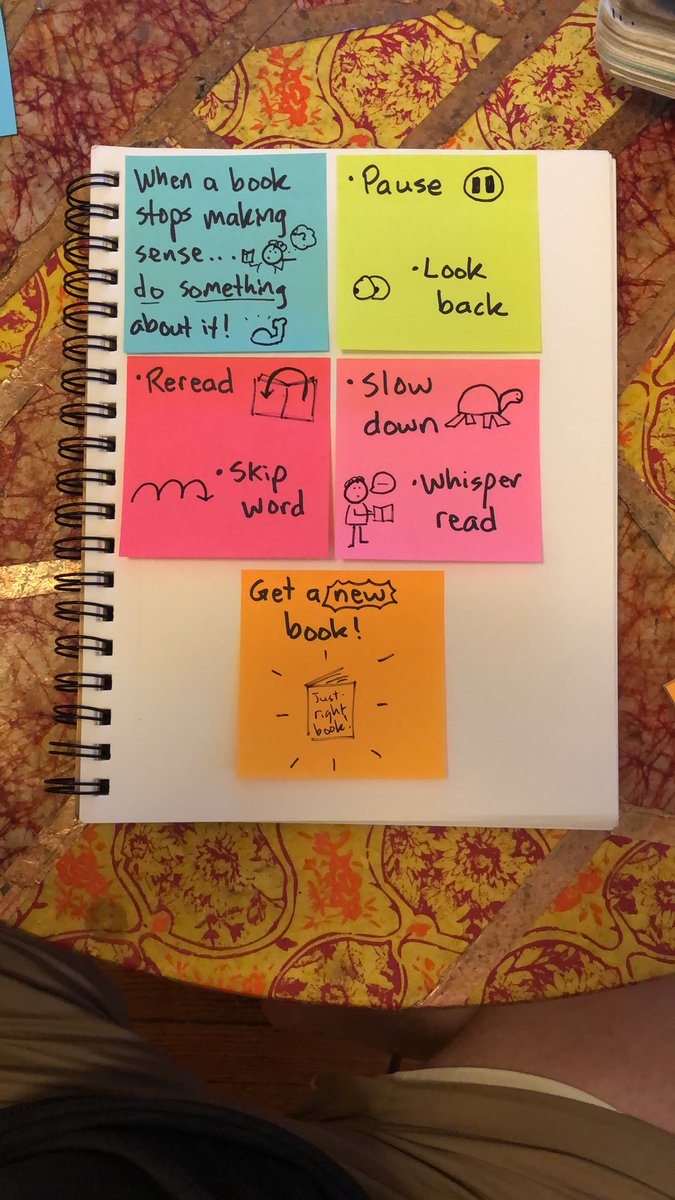 When a book
stops making
sense...
do something
about it!
• Pause
• Look
back
• Reread
• Skip
word
• Slow
down
• Whisper
read
Get a new
book!
Just-
right
book!